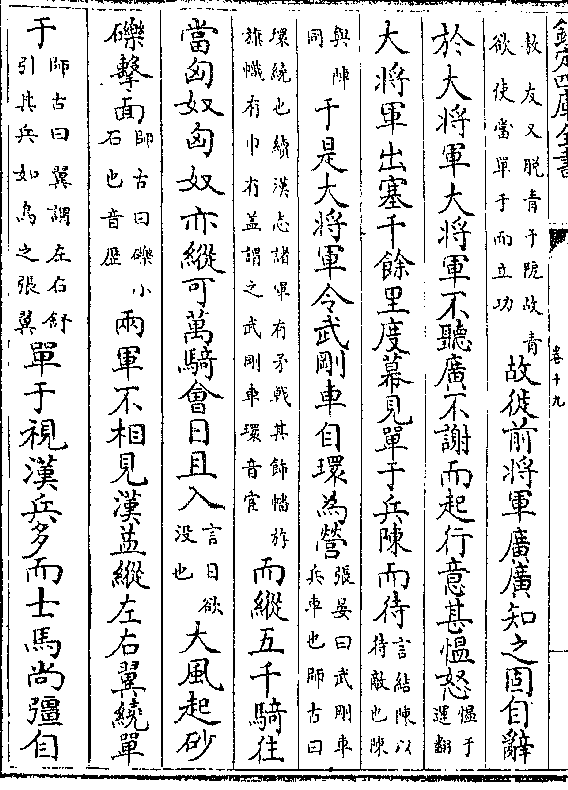 欽定四庫全書
卷十九
敖友又脱青于阨故青
欲使當單于而立功
故徙前將軍廣廣知之固自辭
於大將軍大將軍不聽廣不謝而起行意甚愠怒
愠于
運翻
大將軍出塞千餘里度幕見單于兵陳而待
言結陳以
待敵也陳
與陣
同
于是大將軍令武剛車自環為營
張晏曰武剛車
兵車也師古曰
環繞也續漢志諸軍有矛㦸其飾幡斿
旗幟有巾有蓋謂之武剛車環音宦
而縱五千騎往
當匈奴匈奴亦縱可萬騎會日且入
言日欲
没也
大風起砂
礫擊面
師古曰礫小
石也音歴
兩軍不相見漢益縱左右翼繞單
于
師古曰翼謂左右舒
引其兵如鳥之張翼
單于視漢兵多而士馬尚彊自